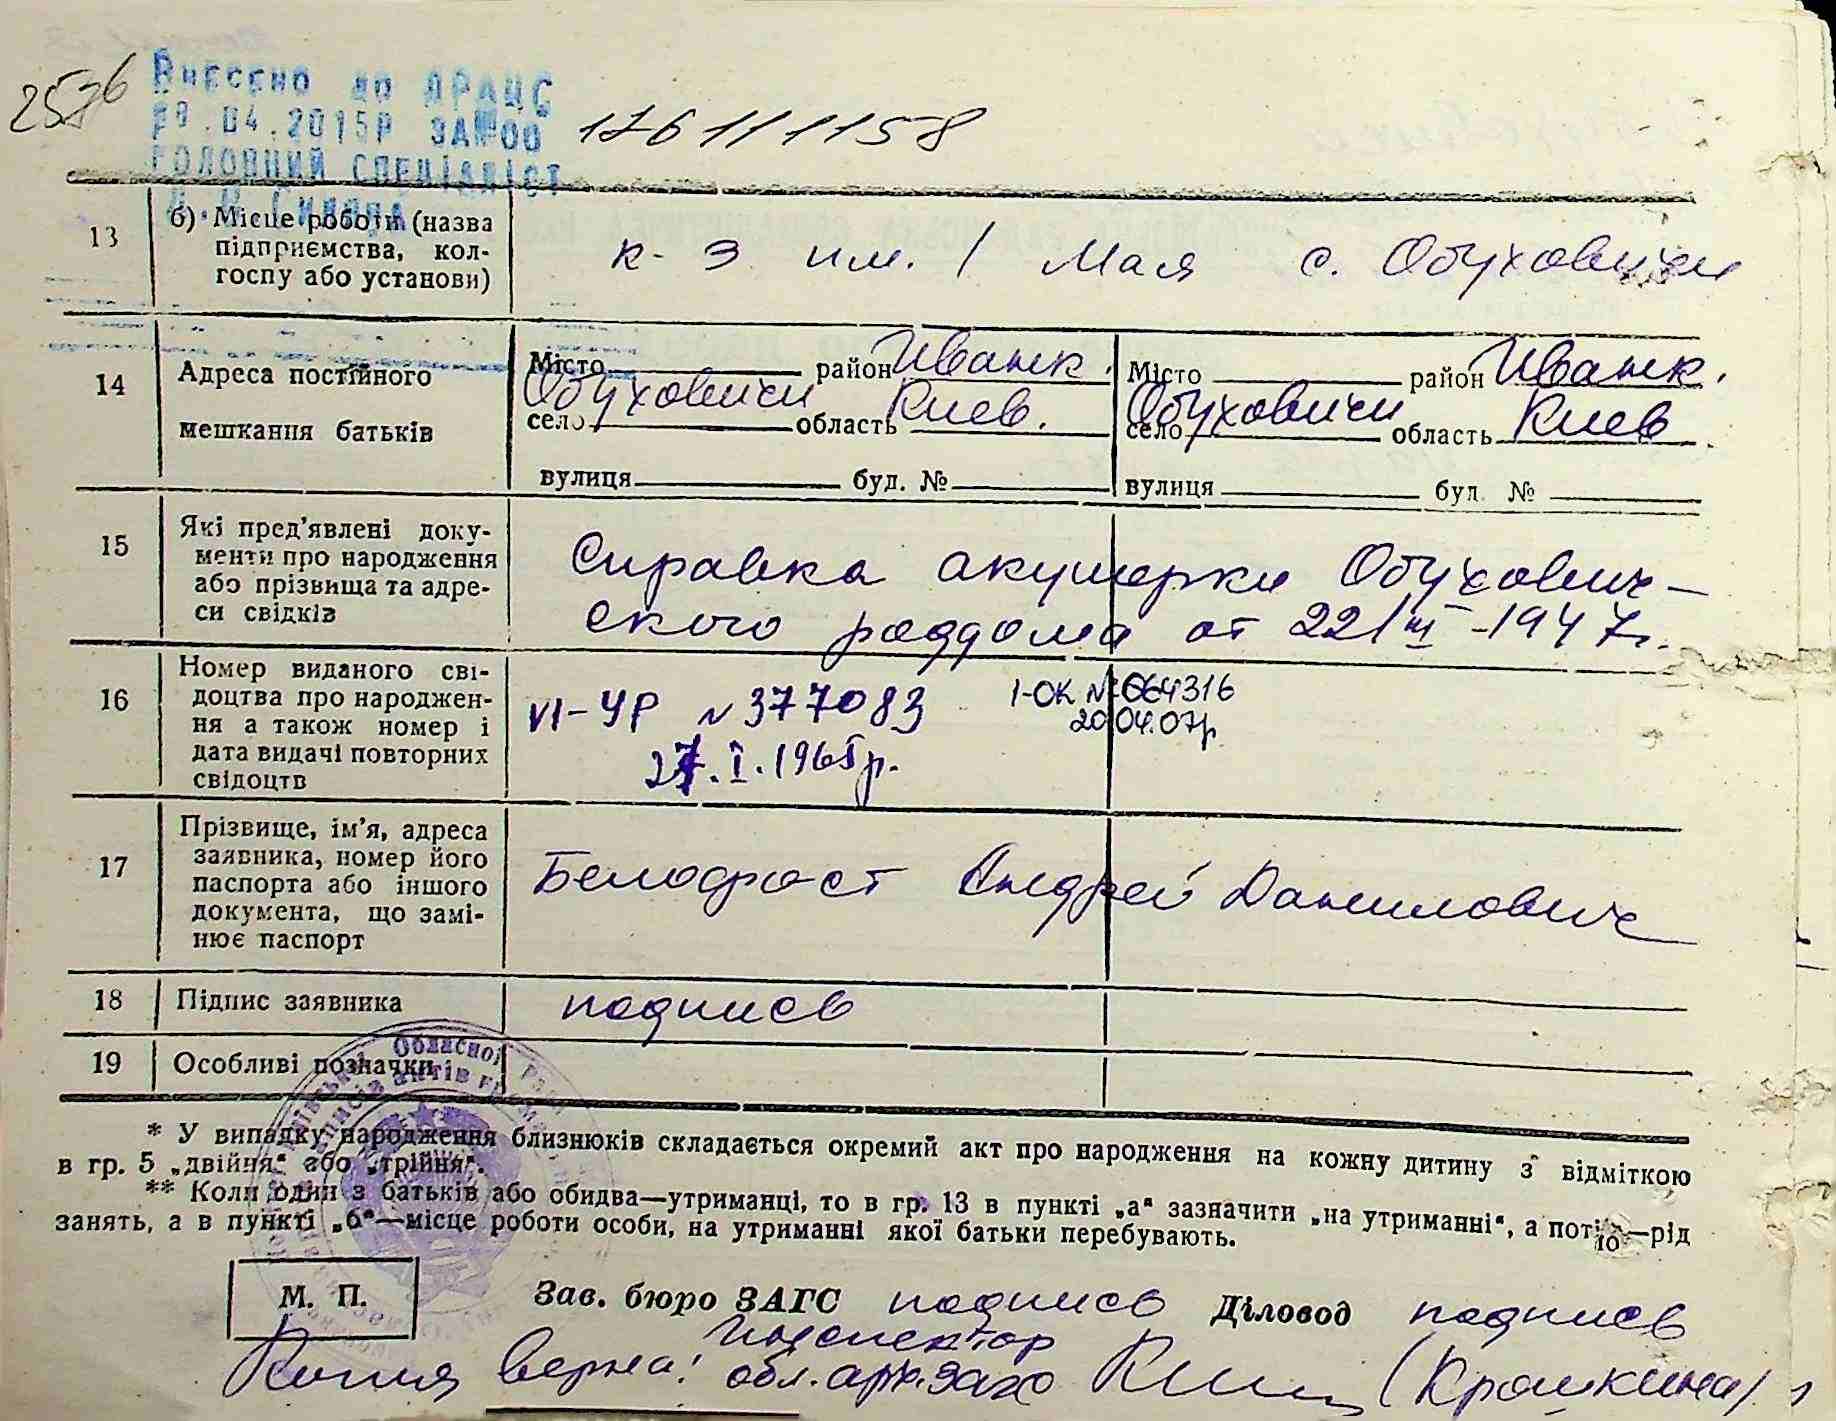 2576
Внесено до ДРАЦС
29.04.2015р за №00 176111158
Головний спеціаліст
13 б) Місце роботи (назва
підприємства, кол-
госпу або установи)
к-з им. 1 Мая с. Обуховичи
14 Адреса постійного
мешкання батьків
Місто район Иванк.
село Обуховичи область Киев.
вулиця буд. №
Місто район Иванк.
село Обуховичи область Киев
вулиця буд. №
15 Які пред'явлені доку-
менти про народження
або прізвища та адре-
си свідків
Справка акушерки Обухович-
ского роддома от 22/III-1947г.
16 Номер виданого сві-
доцтва про народжен-
ня а також номер і
дата видачі повторних
свідоцтв
VI-УР №377083
27.I.1965р.
1-ОК №064316
20.04.07р
17 Прізвище, ім'я, адреса
заявника, номер його
паспорта або іншого
документа, що замі-
нює паспорт
Белодрост Андрей Данилович
18 Підпис заявника
подпись
19 Особливі позначки
* У випадку народження близнюків складається окремий акт про народження на кожну дитину з відміткою
в гр. 5 „двійня“ або „трійня“.
** Коли один з батьків або обидва—утриманці, то в гр. 13 в пункті „а“ зазначити „на утриманні“, а потім—рід
занять, а в пункті „б“—місце роботи особи, на утриманні якої батьки перебувають.
М. П.
Зав. бюро ЗАГС подпись Діловод подпись
Копия верна: Инспектор
обл. арх. загс (Крошкина)